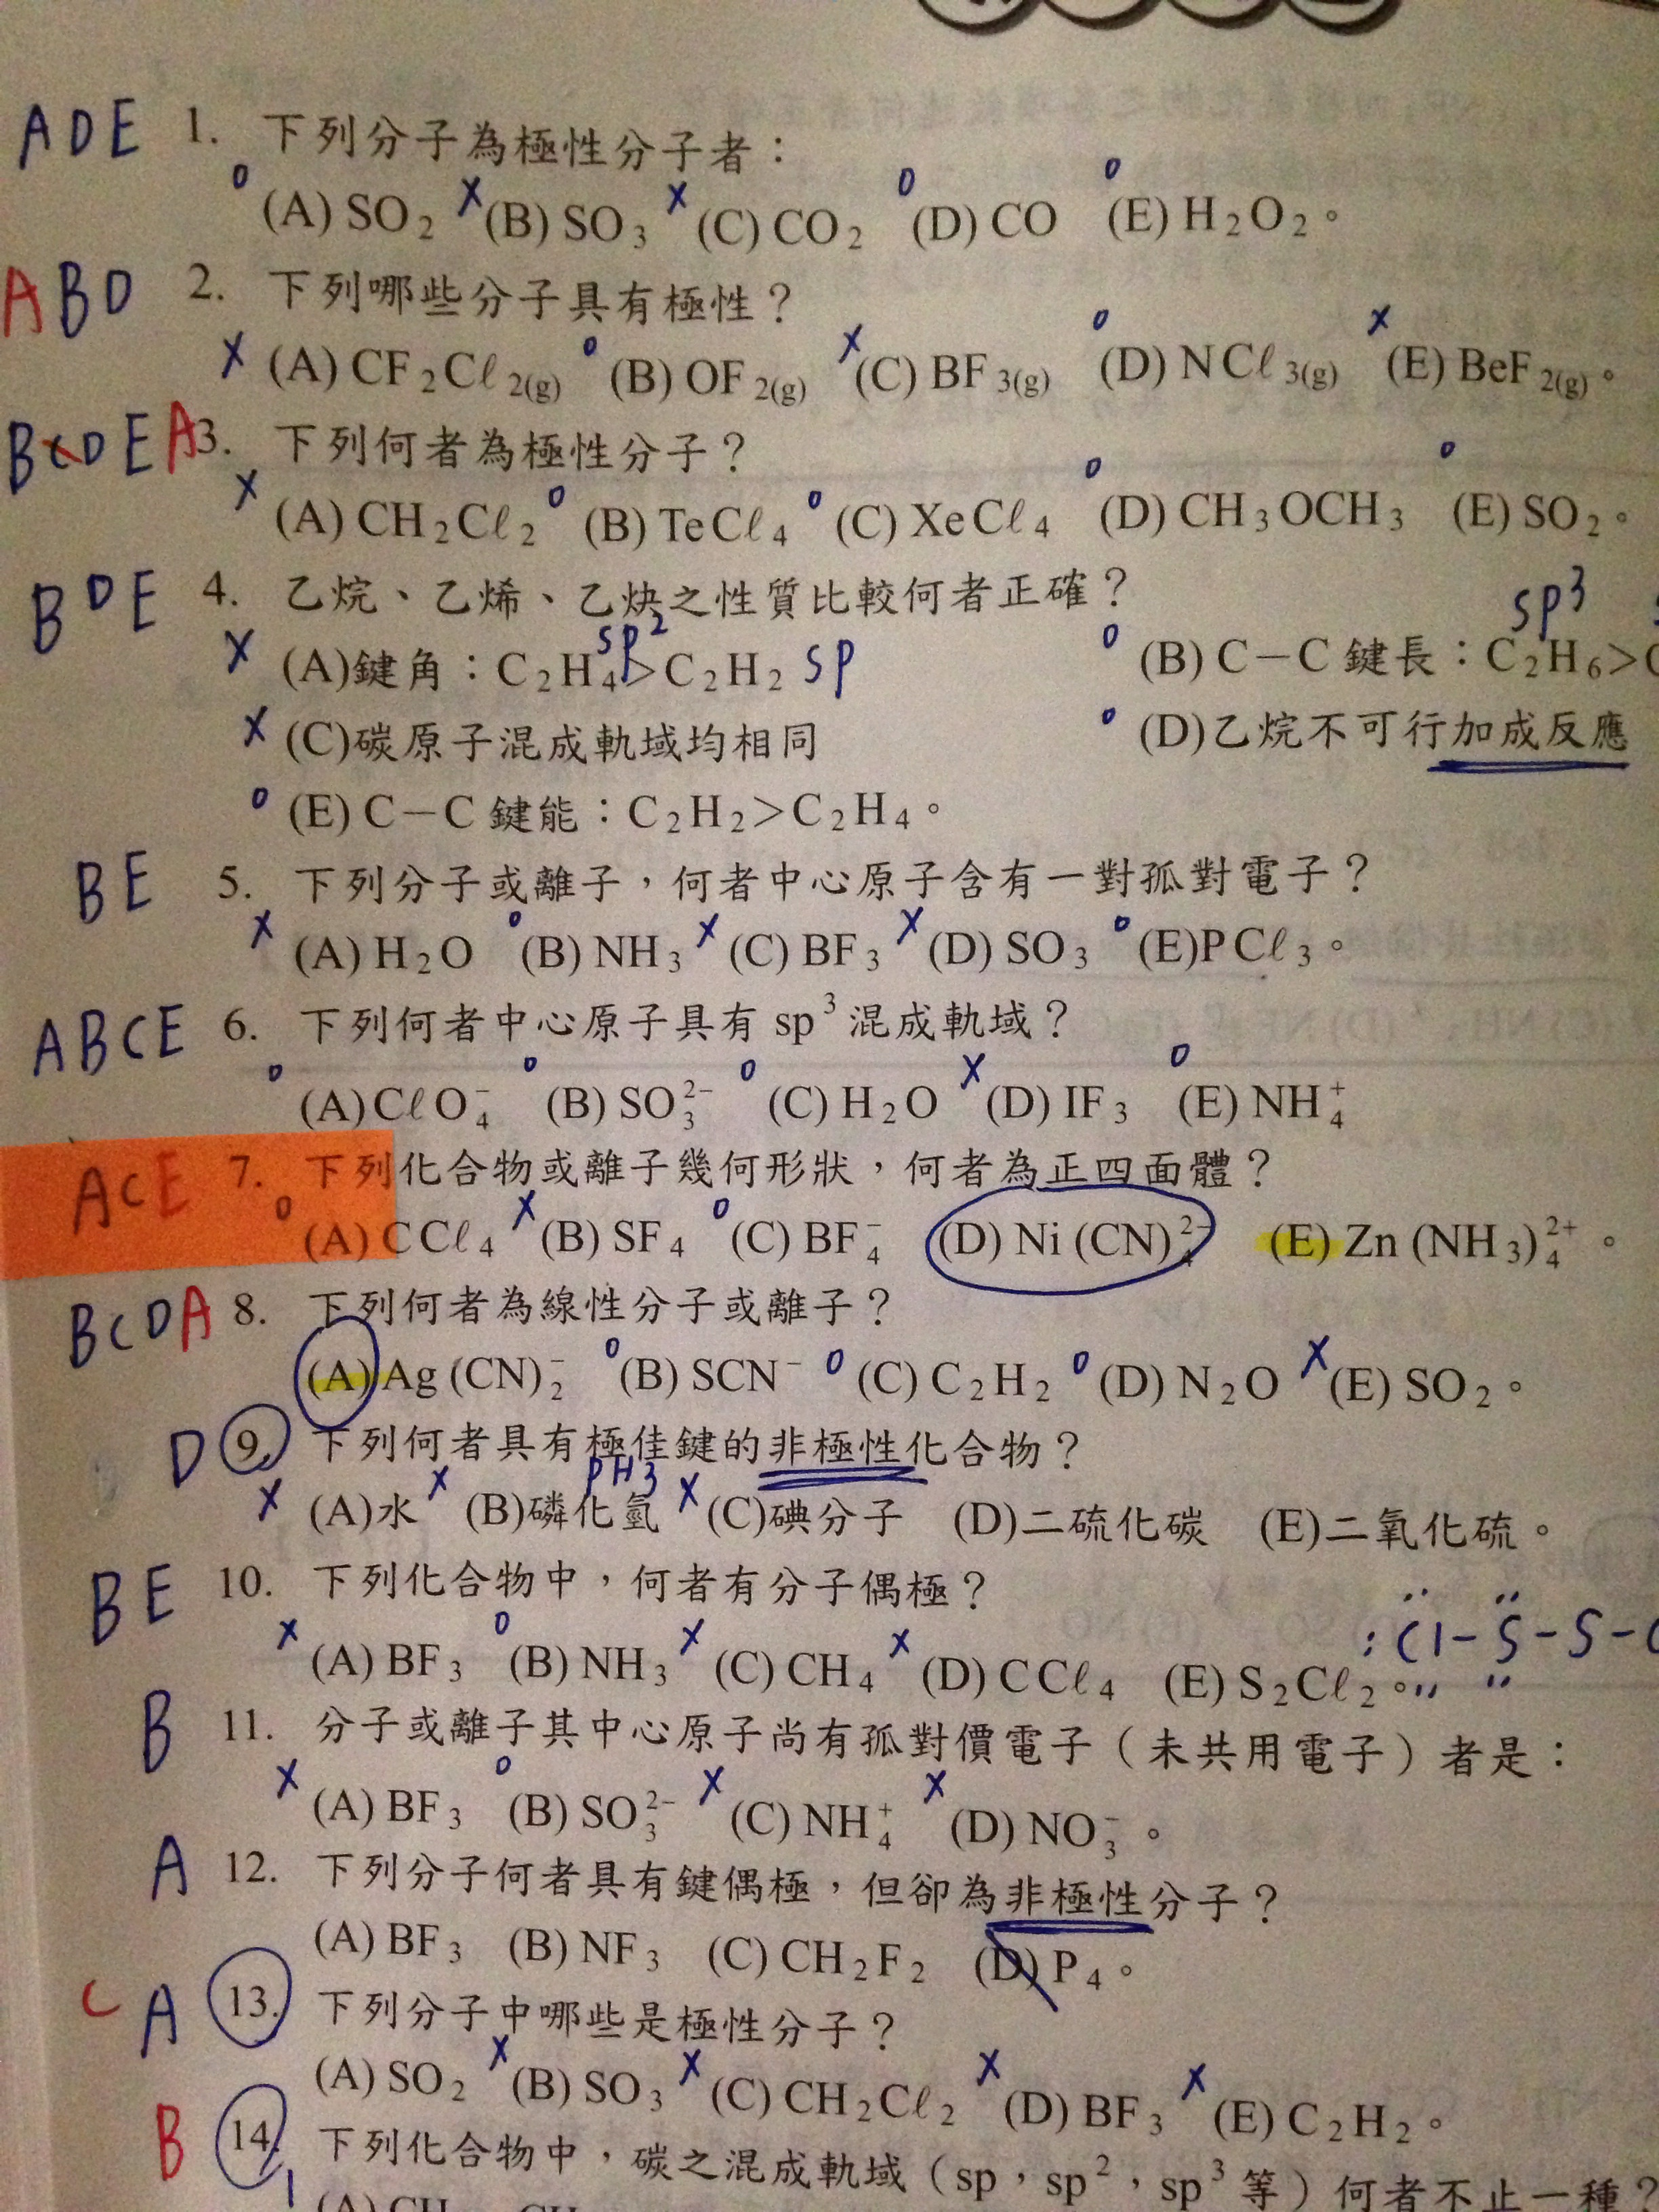 ADE 1. 下列分子為極性分子者：
(A) SO₂ (B) SO₃ (C) CO₂ (D) CO (E) H₂O₂。
ABD 2. 下列哪些分子具有極性？
(A) CF₂Cℓ₂(g) (B) OF₂(g) (C) BF₃(g) (D) NCℓ₃(g) (E) BeF₂(g)。
BCDEA 3. 下列何者為極性分子？
(A) CH₂Cℓ₂ (B) TeCℓ₄ (C) XeCℓ₄ (D) CH₃OCH₃ (E) SO₂。
BDE 4. 乙烷、乙烯、乙炔之性質比較何者正確？
sp² sp³
(A)鍵角：C₂H₄>C₂H₂ sp (B) C－C 鍵長：C₂H₆>
(C)碳原子混成軌域均相同 (D)乙烷不可行加成反應
(E) C－C 鍵能：C₂H₂>C₂H₄。
BE 5. 下列分子或離子，何者中心原子含有一對孤對電子？
(A) H₂O (B) NH₃ (C) BF₃ (D) SO₃ (E)PCℓ₃。
ABCE 6. 下列何者中心原子具有 sp³ 混成軌域？
(A)CℓO₄⁻ (B) SO₃²⁻ (C) H₂O (D) IF₃ (E) NH₄⁺
ACE 7. 下列化合物或離子幾何形狀，何者為正四面體？
(A) CCℓ₄ (B) SF₄ (C) BF₄⁻ (D) Ni (CN)₄²⁻ (E) Zn (NH₃)₄²⁺。
BCDA 8. 下列何者為線性分子或離子？
(A) Ag (CN)₂⁻ (B) SCN⁻ (C) C₂H₂ (D) N₂O (E) SO₂。
D 9. 下列何者具有極佳鍵的非極性化合物？
PH₃
(A)水 (B)磷化氫 (C)碘分子 (D)二硫化碳 (E)二氧化硫。
BE 10. 下列化合物中，何者有分子偶極？
:Cl-S-S-
(A) BF₃ (B) NH₃ (C) CH₄ (D) CCℓ₄ (E) S₂Cℓ₂。
B 11. 分子或離子其中心原子尚有孤對價電子（未共用電子）者是：
(A) BF₃ (B) SO₃²⁻ (C) NH₄⁺ (D) NO₃⁻。
A 12. 下列分子何者具有鍵偶極，但卻為非極性分子？
(A) BF₃ (B) NF₃ (C) CH₂F₂ (D) P₄。
C A 13. 下列分子中哪些是極性分子？
(A) SO₂ (B) SO₃ (C) CH₂Cℓ₂ (D) BF₃ (E) C₂H₂。
B 14. 下列化合物中，碳之混成軌域（sp，sp²，sp³ 等）何者不止一種？